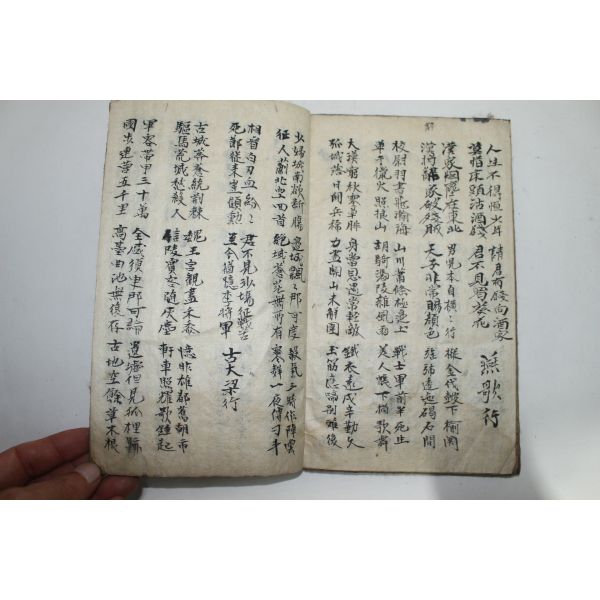 人生不得恆少年 請君有錢向酒家
莫惜床頭沽酒錢 君不見蜀葵花 燕歌行
漢家烟塵在東北 男兒本自橫〻行 摐金伐鼓下榆関
漢將辭家破殘賊 天子非常賜顔色 旌旆逶迤碣石間
校尉羽書飛瀚海 山川蕭條極邊土 戰士軍前半死生
單于獵火照狼山 胡騎馮陵雜風雨 美人帳下猶歌舞
大漠窮秋塞草腓 身當恩遇常輕敵 鐵衣遠戍辛勤久
孤城落日鬪兵稀 力盡關山未解圍 玉筯應啼別離後
少婦城南欲斷腸 邊城飄〻那可度 殺氣三時作陣雲
征人薊北空回首 絕域蒼茫無所有 寒聲一夜傳刁斗
相看白刃血紛〻 君不見沙場征戰苦
死節從來豈顧勳 至今猶憶李將軍 古大梁行
古城莽蒼饒荊榛 魏王宮觀盡禾黍 憶昨雄都舊朝市
驅馬荒城愁殺人 信陵賓客隨灰塵 軒車照耀歌鍾起
軍容帶甲三十萬 全盛須臾那可論 遺墟但見狐狸跡
國步連營五千里 高臺曲池無復存 古地空餘草木根